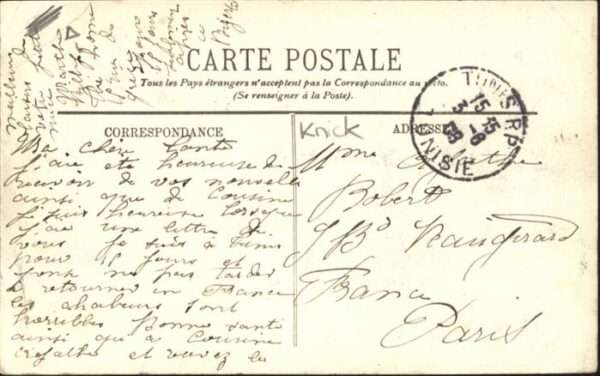 CARTE POSTALE
Tous les Pays étrangers n'acceptent pas la Correspondance au recto.
(Se renseigner à la Poste)
CORRESPONDANCE
ADRESSE
Knick
TUNIS R.P.
15 45
3 - 8
08
TUNISIE
Ma chère Tante
j'aie été heureuse de
recevoir de vos nouvelle
ainsi que de Cousine
je suis heureuse lorsque
j'aie une lettre de
vous je suis à Tunis
pour 15 jours et
pense ne pas tarder
a retourner en France
les chaleurs sont
horribles Bonne santé
ainsi qu'à Cousine
et vous les
Mme
Robert
Bd Vaugirard
France
Paris
meilleurs
baisers de
votre petite
nièce
Marthe